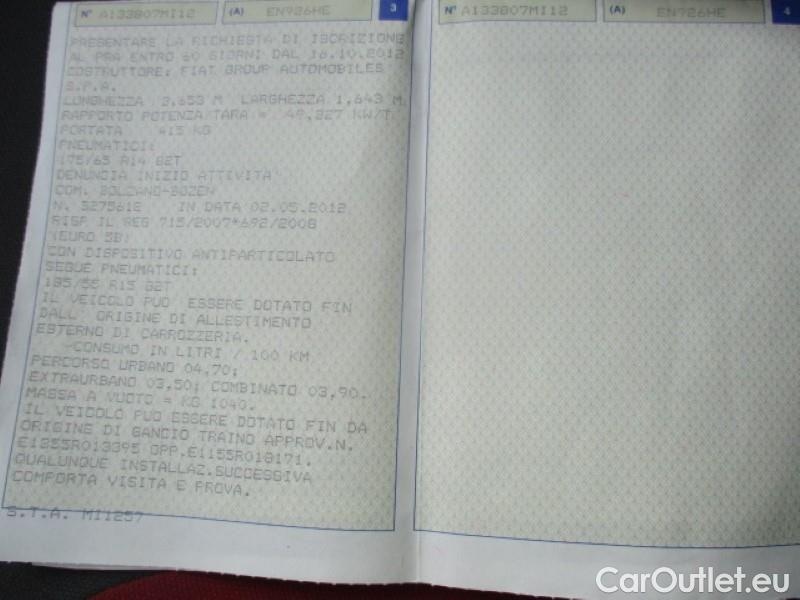 N° A133807MI12 (A) EN726HE 3
PRESENTARE LA RICHIESTA DI ISCRIZIONE
AL PRA ENTRO 60 GIORNI DAL 16.10.2012
COSTRUTTORE: FIAT GROUP AUTOMOBILES
S.P.A.
LUNGHEZZA 3,653 M LARGHEZZA 1,643 M
RAPPORTO POTENZA/TARA = 49,327 KW/T
PORTATA 415 KG
PNEUMATICI:
175/65 R14 82T
DENUNCIA INIZIO ATTIVITA'
COM. BOLZANO-BOZEN
N. 3275612 IN DATA 02.05.2012
RISP IL REG 715/2007*692/2008
(EURO 5B)
CON DISPOSITIVO ANTIPARTICOLATO
SEGUE PNEUMATICI:
185/55 R15 82T
IL VEICOLO PUO' ESSERE DOTATO FIN
DALL' ORIGINE DI ALLESTIMENTO
ESTERNO DI CARROZZERIA.
-CONSUMO IN LITRI / 100 KM
PERCORSO URBANO 04,70;
EXTRAURBANO 03,50; COMBINATO 03,90.
MASSA A VUOTO = KG 1040.
IL VEICOLO PUO ESSERE DOTATO FIN DA
ORIGINE DI GANCIO TRAINO APPROV.N.
E1355R013395 OPP.E1155R018171.
QUALUNQUE INSTALLAZ.SUCCESSIVA
COMPORTA VISITA E PROVA.
S.T.A. MI1257
N° A133807MI12 (A) EN726HE 4
CarOutlet.eu